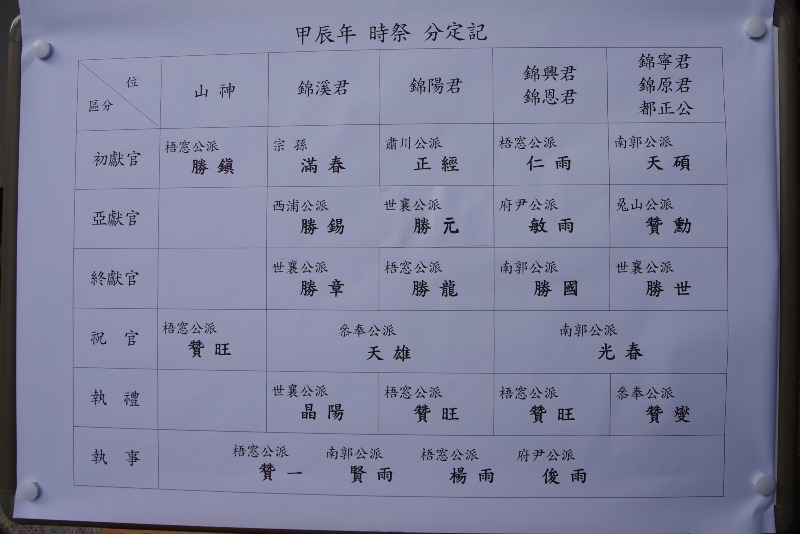 甲辰年 時祭 分定記
位
區分
山神
錦溪君
錦陽君
錦興君
錦恩君
錦寧君
錦原君
都正公
初獻官
梧窓公派
勝鎭
宗孫
滿春
肅川公派
正經
梧窓公派
仁雨
南郭公派
天碩
亞獻官
西浦公派
勝錫
世襄公派
勝元
府尹公派
敏雨
兎山公派
贊勳
終獻官
世襄公派
勝章
梧窓公派
勝龍
南郭公派
勝國
世襄公派
勝世
祝官
梧窓公派
贊旺
叅奉公派
天雄
南郭公派
光春
執禮
世襄公派
晶陽
梧窓公派
贊旺
梧窓公派
贊旺
叅奉公派
贊燮
執事
梧窓公派
贊一
南郭公派
賢雨
梧窓公派
楊雨
府尹公派
俊雨